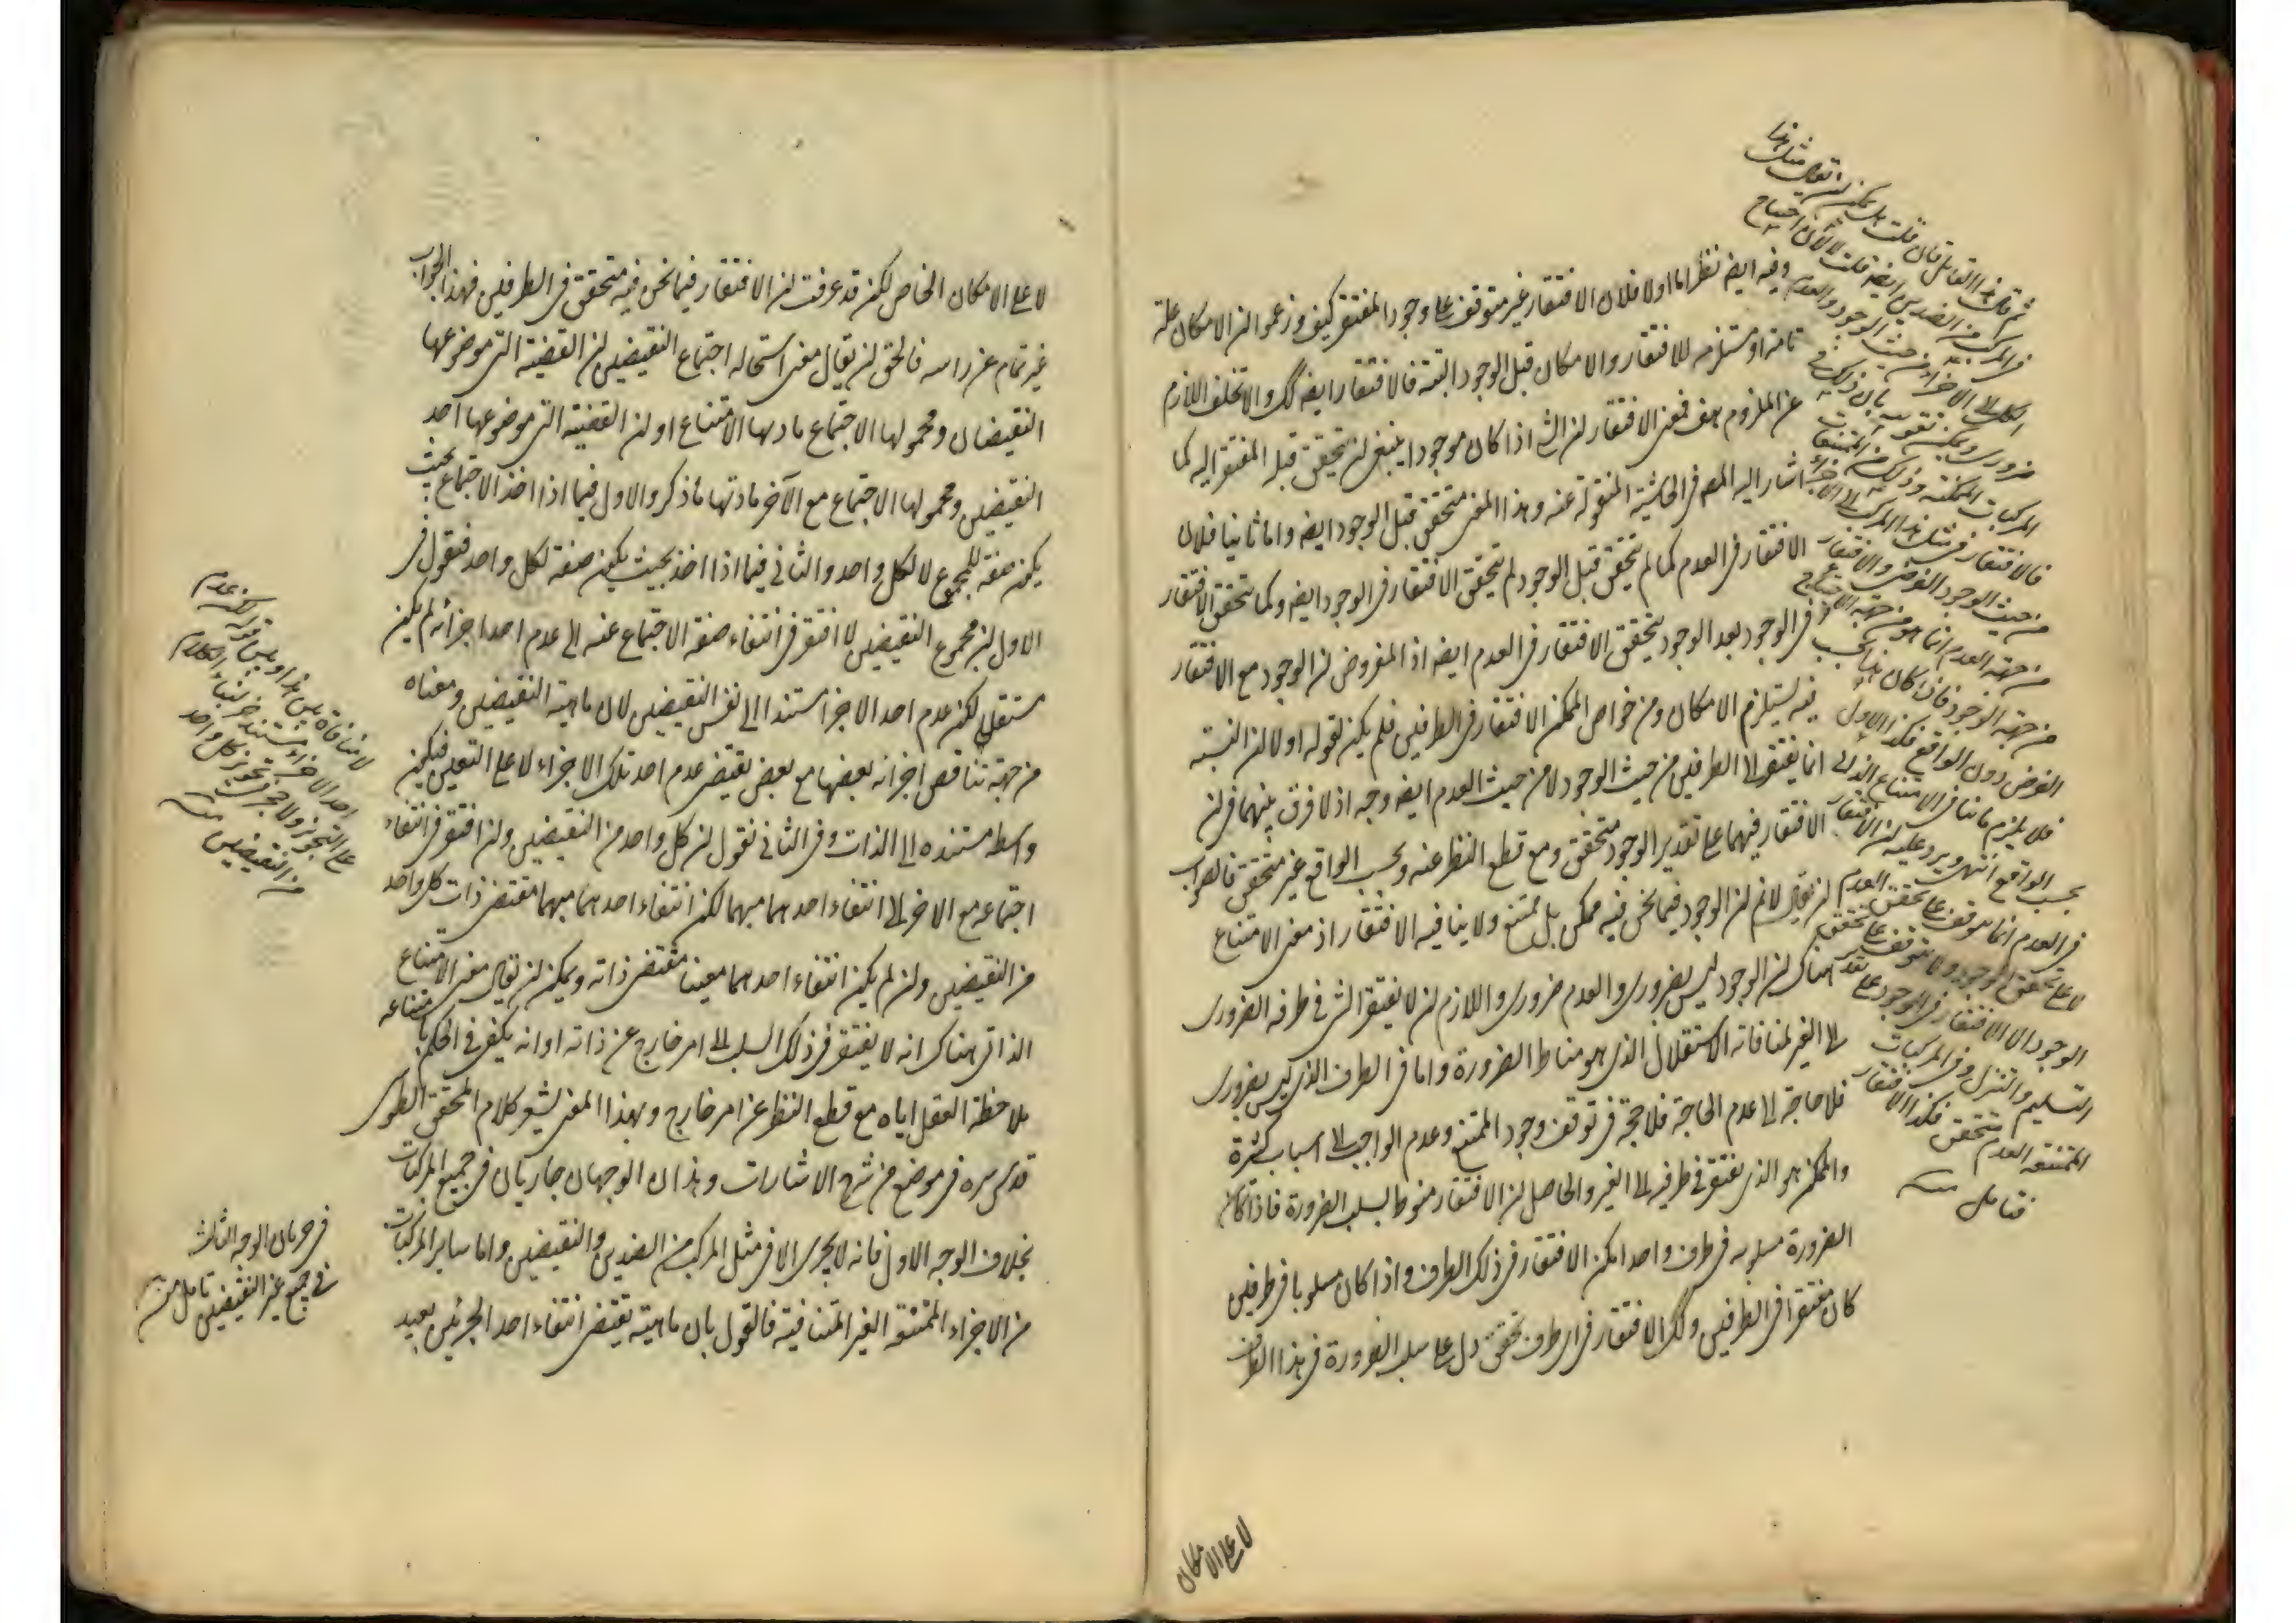 وفيه ايضا نظر اما اولا فلان الافتقار غير متوقف على وجود المفتقر كيف وزعموا ان الامكان علة
تامة او مستلزمة للافتقار والامكان قبل الوجود البتة فالافتقار ايضا كك والا تخلف اللازم
عن الملزوم هف فمعنى الافتقار ان الشئ اذا كان موجودا ينبغي ان يتحقق قبله المفتقر اليه كما
اشار اليه المصـ في الحاشية المنقولة عنه وهذا المعنى متحقق قبل الوجود ايضا واما ثانيا فلان
الافتقار في العدم كما لم يتحقق قبل الوجود لم يتحقق الافتقار في الوجود ايضا وكما يتحقق الافتقار
في الوجود بعد الوجود يتحقق الافتقار في العدم ايضا اذ المفروض ان الوجود مع الافتقار
فيه يستلزم الامكان ومن خواص الممكن الافتقار في الطرفين فلم يكن لقوله اولا ان النسبة
انما يفتقر الى الطرفين من حيث الوجود لا من حيث العدم ايضا وجه اذ لا فرق بينهما في ان
الافتقار فيهما على تقدير الوجود متحقق ومع قطع النظر عنه وبحسب الواقع غير متحقق فالصواب
ان يقال لانم ان الوجود فيما نحن فيه ممكن بل ممتنع ولا ينافيه الافتقار اذ معنى الامتناع
هناك ان الوجود ليس بضروري والعدم ضروري واللازم ان لا يفتقر الشئ في طرفه الضروري
الى الغير لمنافاته الاستقلال الذي هو مناط الضرورة واما في الطرف الذي ليس بضروري
فلا حاجة الى عدم الحاجة فلا حجة في توقف وجود الممتنع وعدم الواجب الى اسباب كثيرة
والممكن هو الذي يفتقر في طرفيه الى الغير والحاصل ان الافتقار منوط بسلب الضرورة فاذا كان
الضرورة مسلوبه في طرف واحد امكن الافتقار في ذلك الطرف واذا كان مسلوبا في طرفين
كان مفتقرا في الطرفين وكك الافتقار في اي طرف تحقق دل على سلب الضرورة في هذا الطرف
لا على الامكان
ثم قال هذا القايل فان قلت هل يمكن ان يقال مثل هذا
في المركب من الضدين ايضا قلت لا لان احتياج
الكل الى الاجزاء من حيث الوجود والعدم
ضروري ويمكن نقضه بان ذلك في
المركبات الممكنة وذلك من الممتنعات
فالافتقار في مثل هذا المركب الى الاجزاء
من حيث الوجود الفرضي والافتقار
من جهة العدم انما هو من جهة الاحتياج
من جهة الوجود فاذا كان هذا بحسب
الفرض دون الواقع فكذا الاول
فلا يلزم ما ينافي الامتناع الذاتي
بحسب الواقع انتهى ويرد عليه ان الافتقار
في العدم انما يتوقف على تحقق العدم
لا على تحقق الوجود ولا يتوقف على تحقق
الوجود الا الافتقار في الوجود على تقدير
التسليم والتنزل وفي المركبات
الممتنعة العدم متحقق فكذا الافتقار
فتامل منه
لا على الامكان الخاص لكن قد عرفت ان الافتقار فيما نحن فيه متحقق في الطرفين فهذا الجواب
غير تمام عن راسه فالحق ان يقال معنى استحاله اجتماع النقيضين ان القضية التي موضوعها
النقيضان ومحمولها الاجتماع مادتها الامتناع او ان القضية التي موضوعها احد
النقيضين ومحمولها الاجتماع مع الآخر مادتها ما ذكر والاول فيما اذا اخذ الاجتماع بحيث
يكون صفة للمجموع لا لكل واحد والثاني فيما اذا اخذ بحيث يكون صفة لكل واحد فنقول في
الاول ان مجموع النقيضين لا افتقر في انتفاء صفة الاجتماع عنه الى عدم احد اجزائه لم يكن
مستقلا لكن عدم احد الاجزا مستندا الى نفس النقيضين لان ماهية النقيضين ومعناه
من جهة تناقض اجزائه بعضها مع بعض يقتضي عدم احد تلك الاجزاء لا على التعيين فيكون
واسطه مستنده الى الذات وفي الثاني نقول ان كل واحد من النقيضين وان افتقر في انتفاء
اجتماعه مع الاخر الى انتفاء احدهما مبهما لكن انتفاء احدهما مبهما مقتضى ذات كل واحد
من النقيضين وان لم يكن انتفاء احدهما معينا مقتضى ذاته ويمكن ان يقال معنى الامتناع
الذاتي هناك انه لا يفتقر في ذلك السلب الى امر خارج عن ذاته او انه يكفي في الحكم بامتناعه
ملاحظة العقل اياه مع قطع النظر عن امر خارج وبهذا المعنى يشعر كلام المحقق الطوسي
قدس سره في موضع من شرح الاشارات وهذان الوجهان جاريان في جميع المركبات
بخلاف الوجه الاول فانه لا يجري الا في مثل المركب من الضدين والنقيضين واما ساير المركبات
من الاجزاء الممتنعة الغير المتنافية فالقول بان ماهيته يقتضي انتفاء احد الجزئين بعيد
لا منافاة بين هذا وبين قوله لكن عدم
احد الاجزاء مستند
على التجويز ولا كل واحد
من النقيضين منه
في جريان الوجه الثالث
في جميع غير النقيضين تامل منه